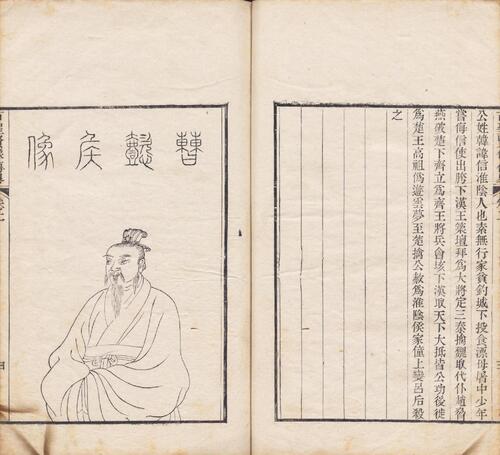 公姓韓諱信淮陰人也素無行家貧釣城下投食漂母屠中少年
嘗侮信使出胯下漢王築壇拜爲大將定三秦擒魏取代仆趙脅
燕破楚下齊立爲齊王將兵會垓下漢取天下大抵皆公功後徙
爲楚王高祖僞遊雲夢至楚擒公赦爲淮陰侯家僮上變呂后殺
之
曹懿侯像